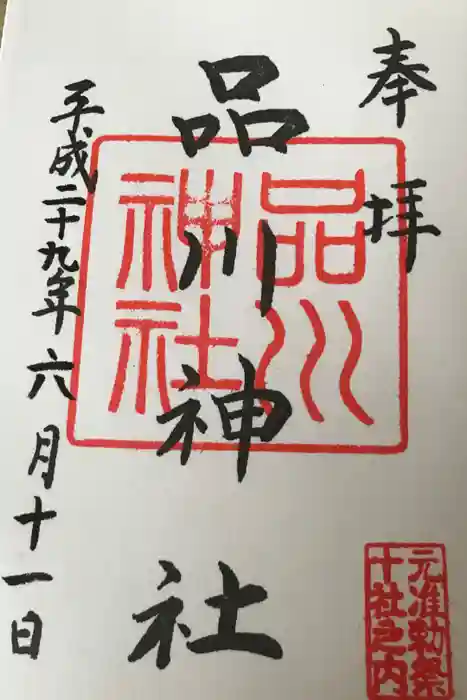 奉拝
品川神社
平成二十九年六月十一日
品川
神社
元准勅祭
十社之内